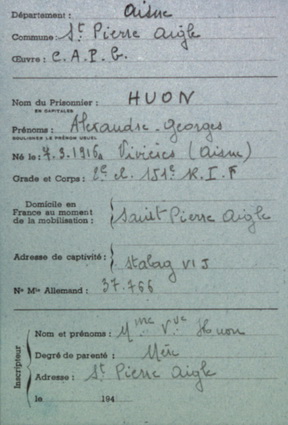 Département : Aisne
Commune : St Pierre Aigle
Œuvre : C.A.P.G.
Nom du Prisonnier : HUON
EN CAPITALES
Prénoms : Alexandre-Georges
SOULIGNER LE PRÉNOM USUEL
Né le : 7.3.1916 à Vivières (Aisne)
Grade et Corps : 2e cl. 151e R.I.F
Domicile en
France au moment
de la mobilisation : Saint Pierre Aigle
Adresse de captivité : Stalag VI J
No Mle Allemand : 37.766
Inscripteur
Nom et prénoms : Mme Vve Huon
Degré de parenté : Mère
Adresse : St Pierre Aigle
le 194